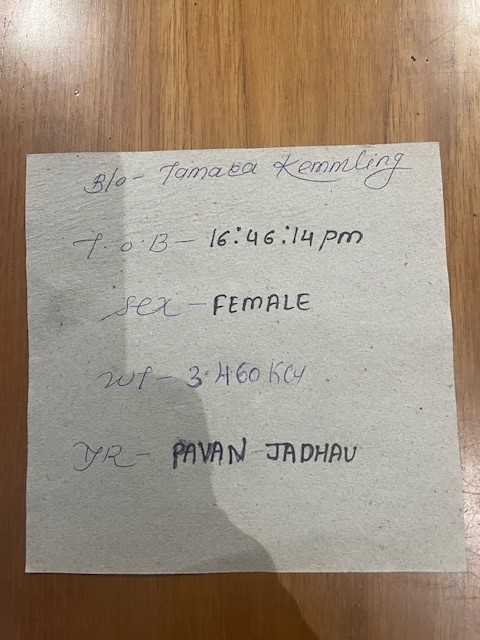 B/o - Tamara Kemmling
T.O.B - 16:46:14 pm
Sex - FEMALE
Wt - 3.460 KG
DR - PAVAN JADHAV